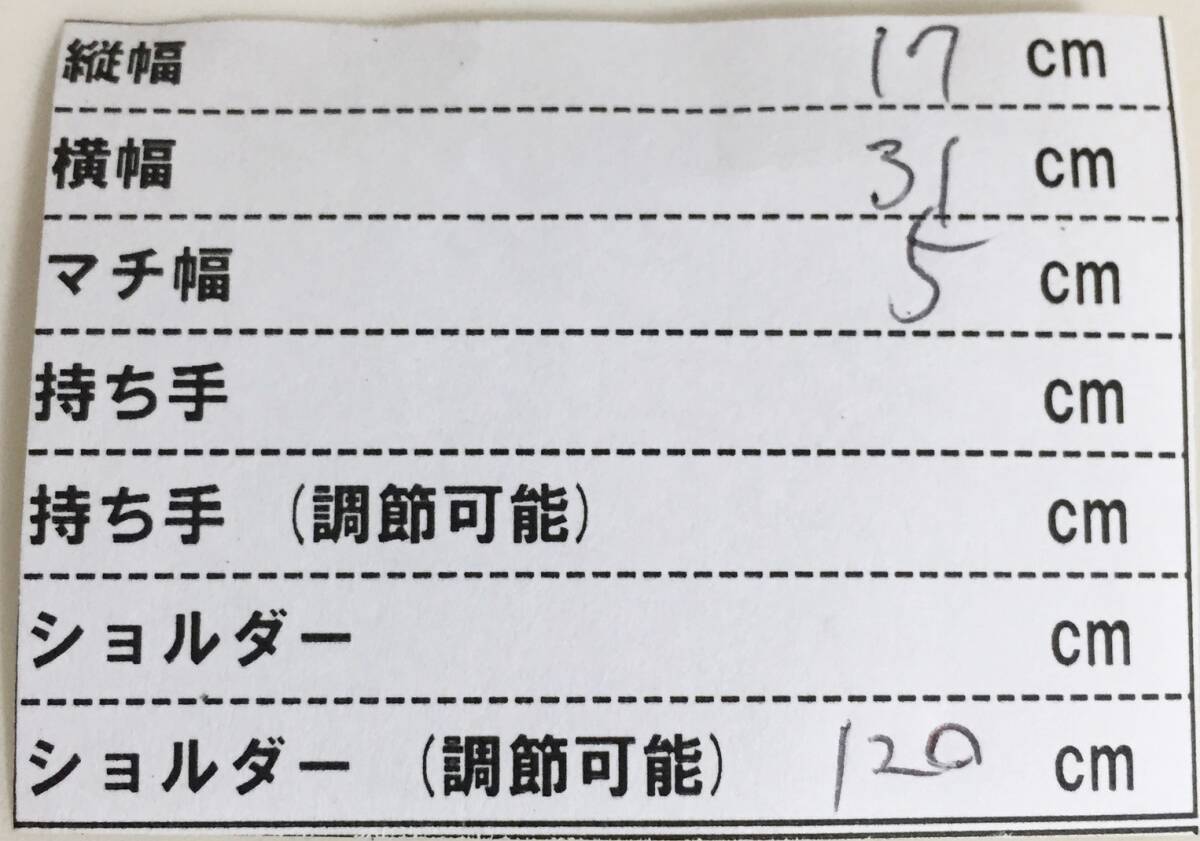 縦幅 17 cm
横幅 31 cm
マチ幅 5 cm
持ち手 cm
持ち手 (調節可能) cm
ショルダー cm
ショルダー (調節可能) 120 cm